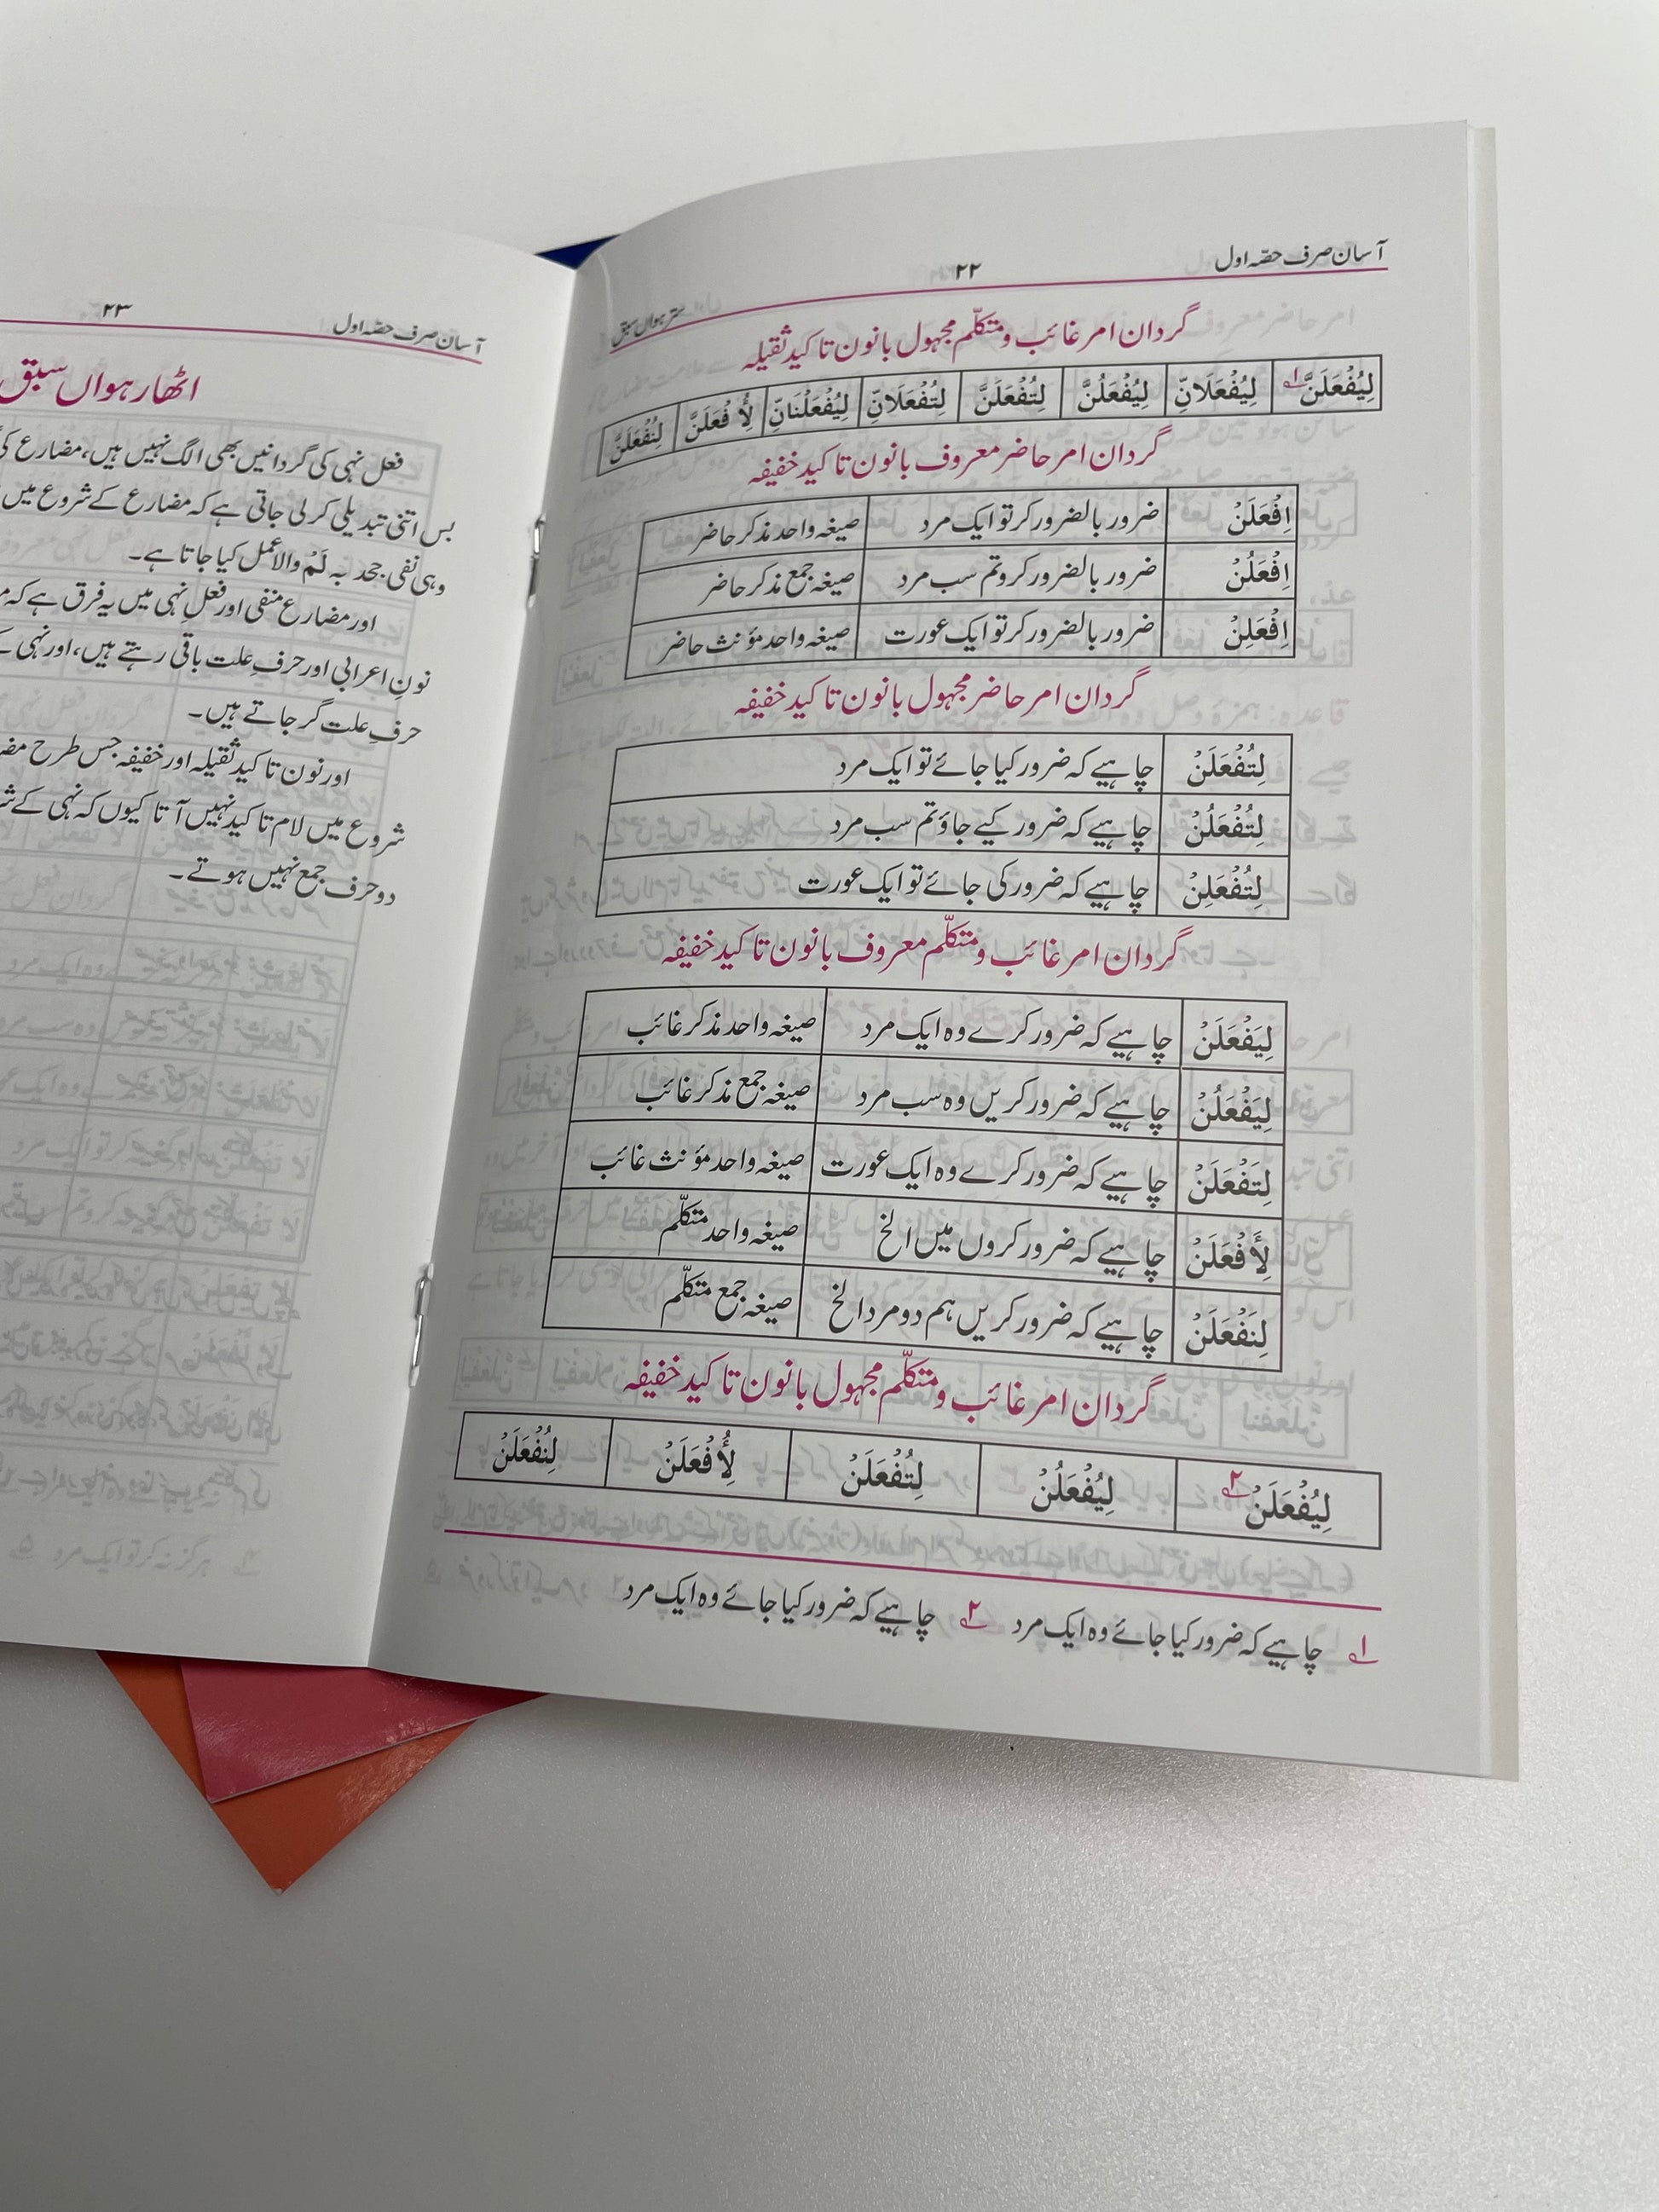 آسان صرف حصّہ اول ۲۲ سترہواں سبق
گردان امر غائب و متکلّم مجہول بانون تاکید ثقیلہ
لِيُفْعَلَنَّ ۱؎ لِيُفْعَلَانِّ لِيُفْعَلُنَّ لِتُفْعَلَنَّ لِتُفْعَلَانِّ لِيُفْعَلْنَانِّ لِأُفْعَلَنَّ لِنُفْعَلَنَّ
گردان امر حاضر معروف بانون تاکید خفیفہ
اِفْعَلَنْ ضرور بالضرور کر تو ایک مرد صیغہ واحد مذکر حاضر
اِفْعَلُنْ ضرور بالضرور کرو تم سب مرد صیغہ جمع مذکر حاضر
اِفْعَلِنْ ضرور بالضرور کر تو ایک عورت صیغہ واحد مؤنث حاضر
گردان امر حاضر مجہول بانون تاکید خفیفہ
لِتُفْعَلَنْ چاہیے کہ ضرور کیا جائے تو ایک مرد
لِتُفْعَلُنْ چاہیے کہ ضرور کیے جاؤ تم سب مرد
لِتُفْعَلِنْ چاہیے کہ ضرور کی جائے تو ایک عورت
گردان امر غائب و متکلّم معروف بانون تاکید خفیفہ
لِيَفْعَلَنْ چاہیے کہ ضرور کرے وہ ایک مرد صیغہ واحد مذکر غائب
لِيَفْعَلُنْ چاہیے کہ ضرور کریں وہ سب مرد صیغہ جمع مذکر غائب
لِتَفْعَلَنْ چاہیے کہ ضرور کرے وہ ایک عورت صیغہ واحد مؤنث غائب
لِأَفْعَلَنْ چاہیے کہ ضرور کروں میں الخ صیغہ واحد متکلّم
لِنَفْعَلَنْ چاہیے کہ ضرور کریں ہم دو مرد الخ صیغہ جمع متکلّم
گردان امر غائب و متکلّم مجہول بانون تاکید خفیفہ
لِيُفْعَلَنْ ۲؎ لِيُفْعَلُنْ لِتُفْعَلَنْ لِأُفْعَلَنْ لِنُفْعَلَنْ
۱؎ چاہیے کہ ضرور کیا جائے وہ ایک مرد ۲؎ چاہیے کہ ضرور کیا جائے وہ ایک مرد
آسان صرف حصّہ اول ۲۳
اٹھارہواں سبق
فعل نہی کی گردانیں بھی الگ نہیں ہیں، مضارع کی
بس اتنی تبدیلی کر لی جاتی ہے کہ مضارع کے شروع میں
وہی نفی جحد بہ لَمْ والا عمل کیا جاتا ہے۔
اور مضارع منفی اور فعلِ نہی میں یہ فرق ہے کہ
نونِ اعرابی اور حرفِ علت باقی رہتے ہیں، اور نہی
حرفِ علت گر جاتے ہیں۔
اور نون تاکید ثقیلہ اور خفیفہ جس طرح
شروع میں لام تاکید نہیں آتا کیوں کہ نہی کے
دو حرف جمع نہیں ہوتے۔